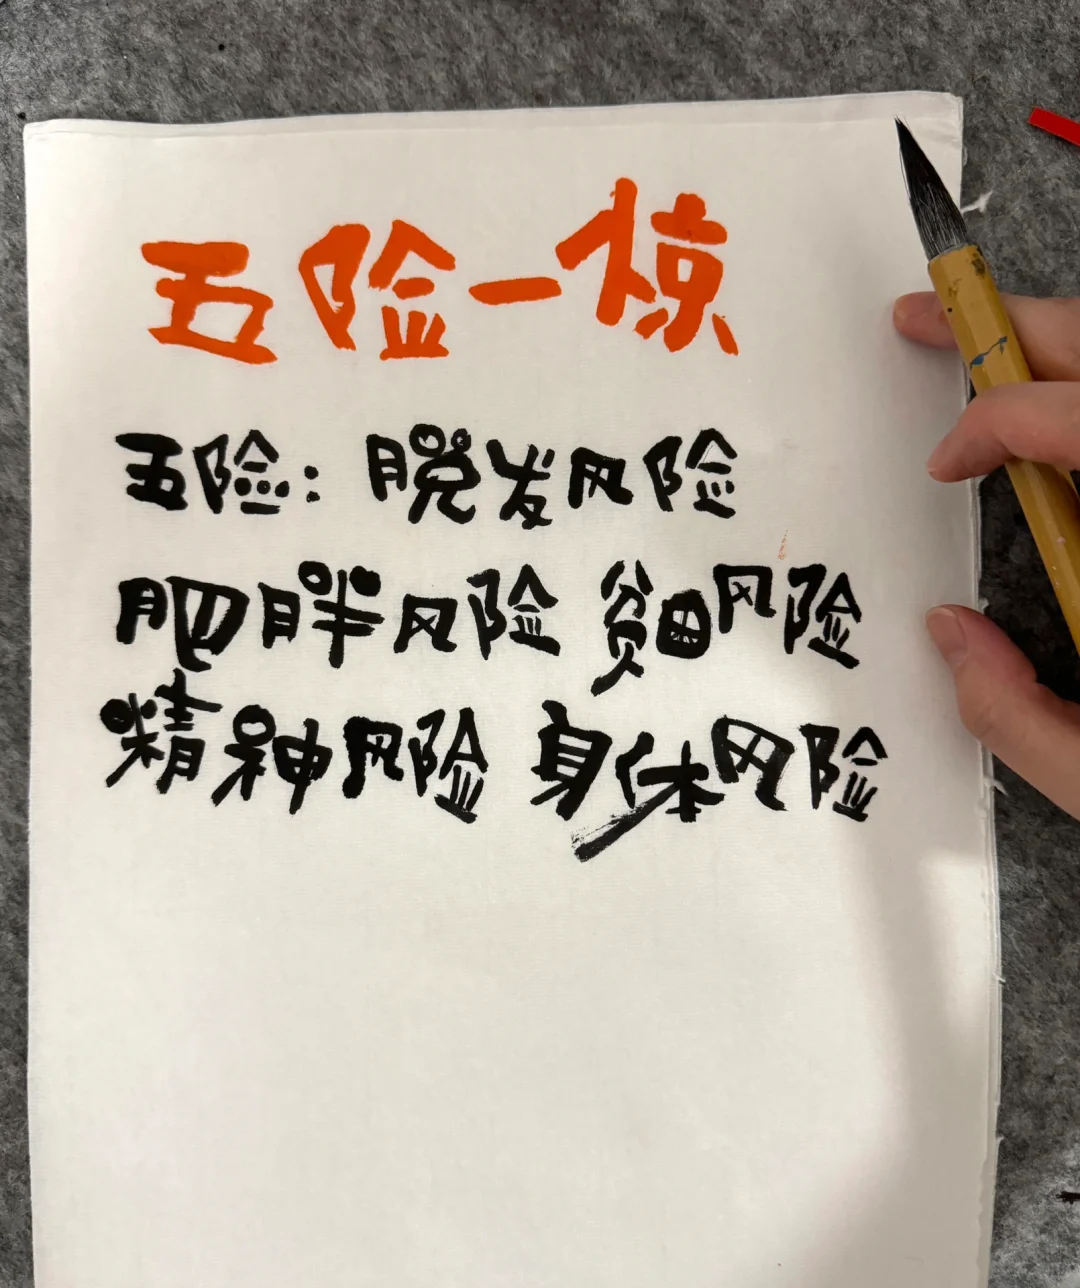 五险一惊
五险：脱发风险
肥胖风险 贫困风险
精神风险 身体风险